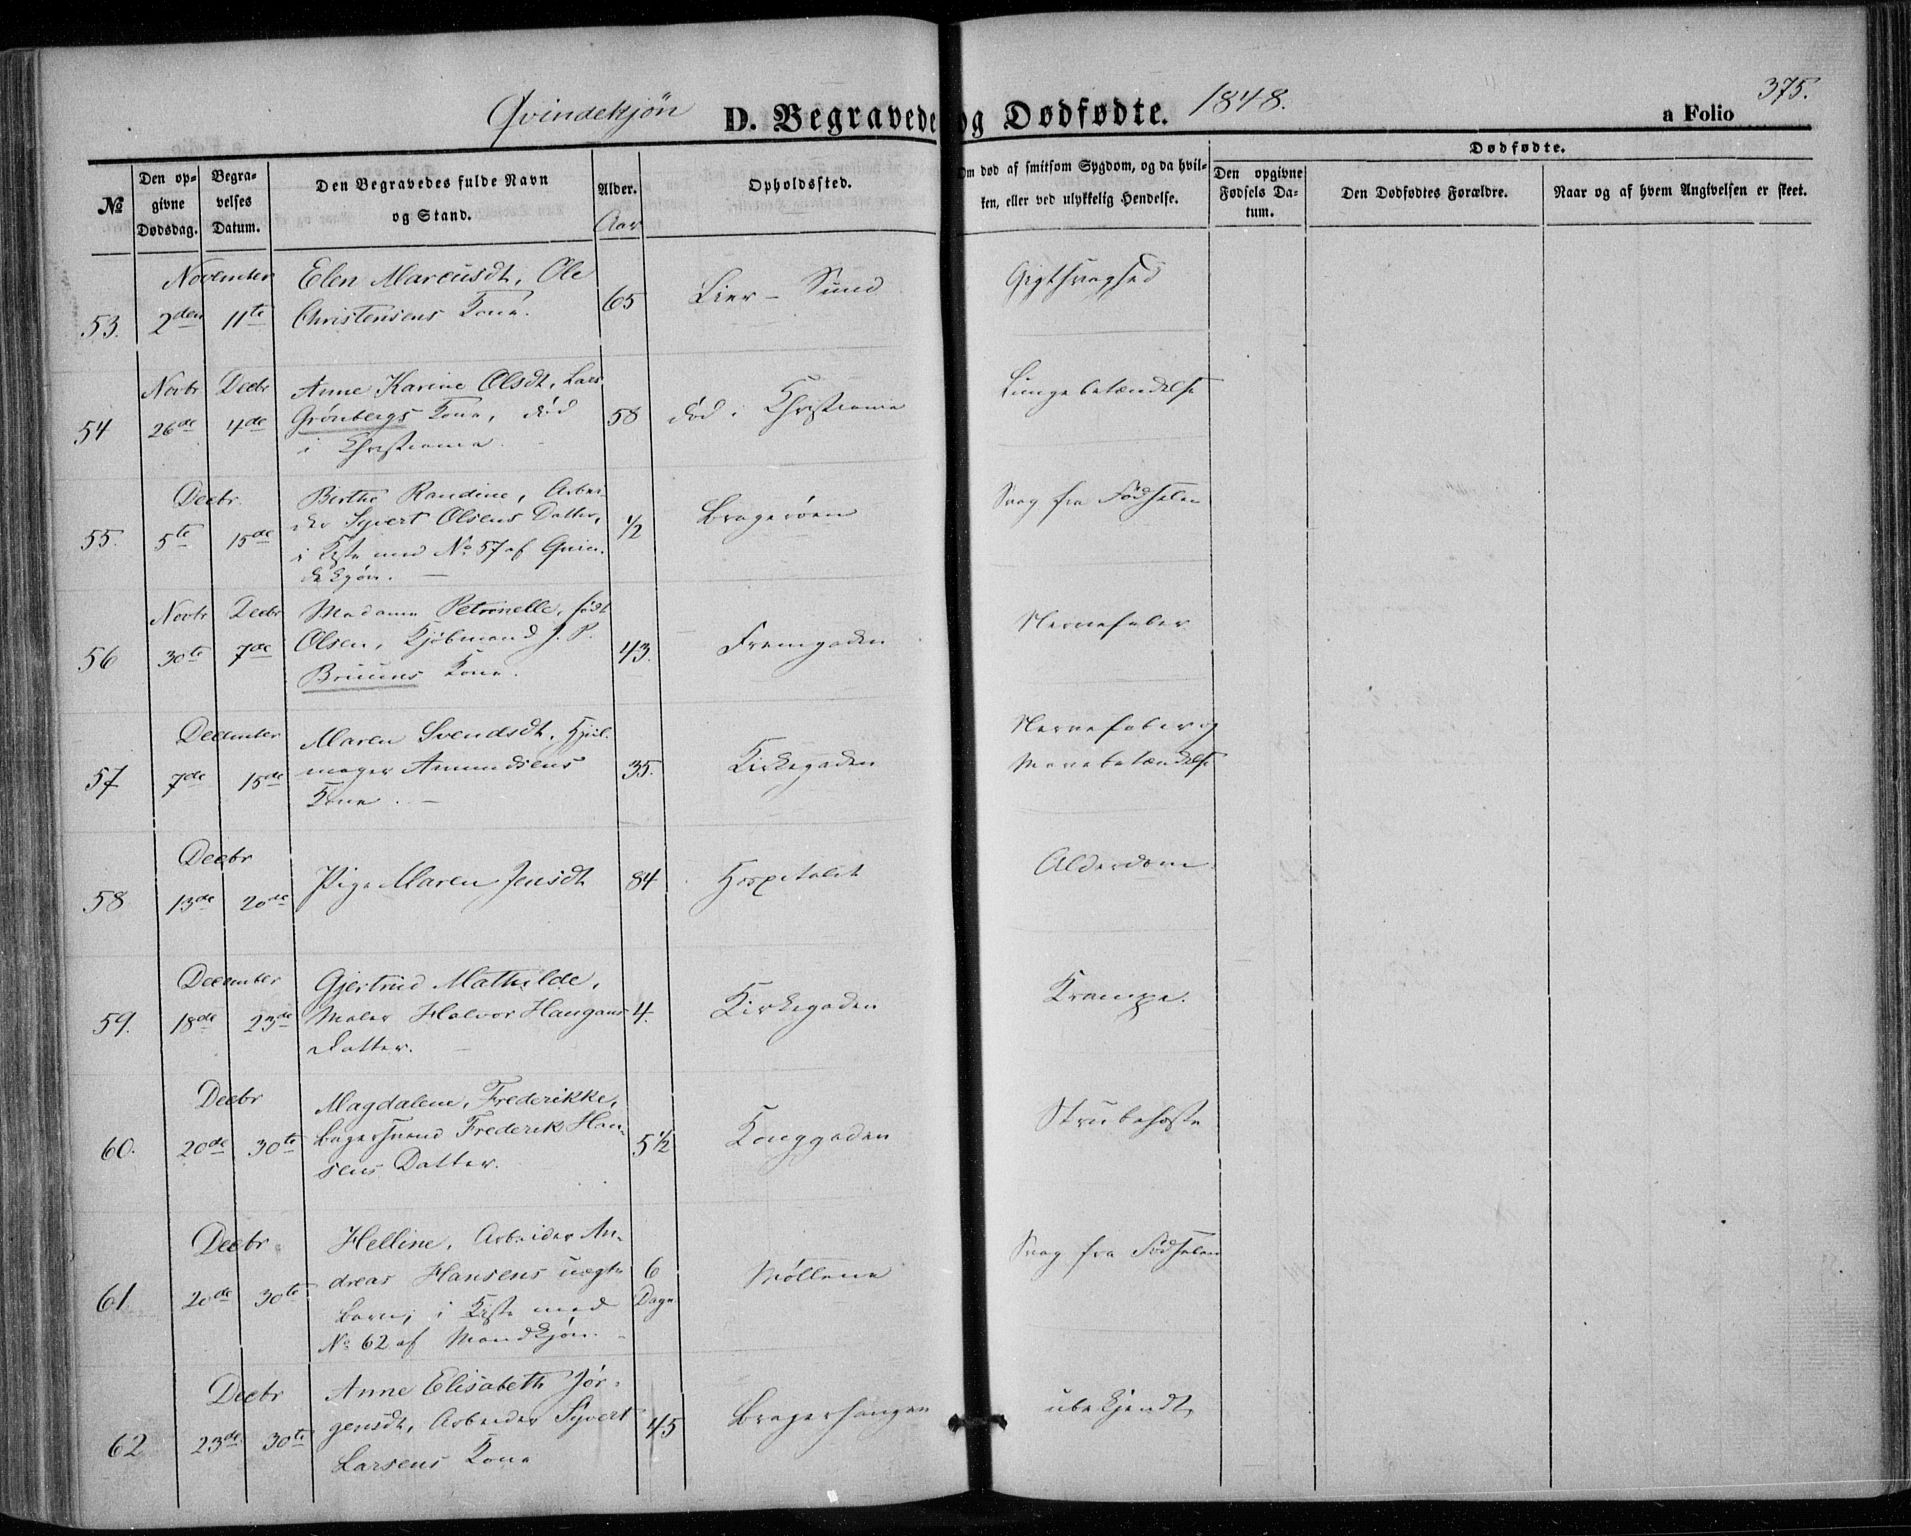 Qvindekjön D. Begravede og Dødfødte. 1848. a Folio 375.
Dødfødte.
№ Den opgivne Dødsdag. Begravelses Datum. Den Begravedes fulde Navn og Stand. Alder. Aar Opholdssted. Om død af smitsom Sygdom, og da hvilken, eller ved ulykkelig Hendelse. Den opgivne Fødsels Datum. Den Dødfødtes Forældre. Naar og af hvem Angivelsen er skeet.
November Elen Marcusdt, Ole
53. 2den 11te Christensens Kone. 65 Lier - Sund Gigtsvaghed
Novbr Decbr Anne Karine Olsdt, Lars
54 26de 4de Grönbergs Kone, död 58 död i Christiania Lungebetændelse
i Christiania.
Decbr. Birthe Randine, Arbei-
55. 5te 15de der Syvert Olsens Datter, 1/2 Bragerøen Svag fra Födselen
i Kiste med No 57 af Qvin-
dekjön. -
Novbr Decbr Madame Petronelle, födt
56 30te 7de Olsen, Kjöbmand J. P. 43. Fremgaden Nervefeber
Bruuns Kone.
December Maren Svendsdt, Hjul- Nervefeber og
57 7de 15de mager Amundsens 35. Kirkegaden Mavebetændelse
Kone. -
Decbr
58 13de 20de Pige Maren Jensdt 84 Hospitalet Alderdom
December Gjertrud Mathilde,
59. 18de 23de Maler Halvor Haugans 4. Kirkegaden Krampe.
Datter. -
Decbr Magdalene, Frederikke,
60. 20de 30te Bagersvend Frederik Han- 5 1/2 Konggaden Strubehoste
sens Datter.
Decbr. Helline, Arbeider An-
61 20de 30te dreas Hansens uægte 6 Dage Möllene Svag fra Födselen
Barn, i Kiste med
No 62 af Mandkjön.
Decbr Anne Elisabeth Jör-
62 23de 30te gensdt, Arbeider Syvert 45 Bragerhaugen ubekjendt
Larsens Kone